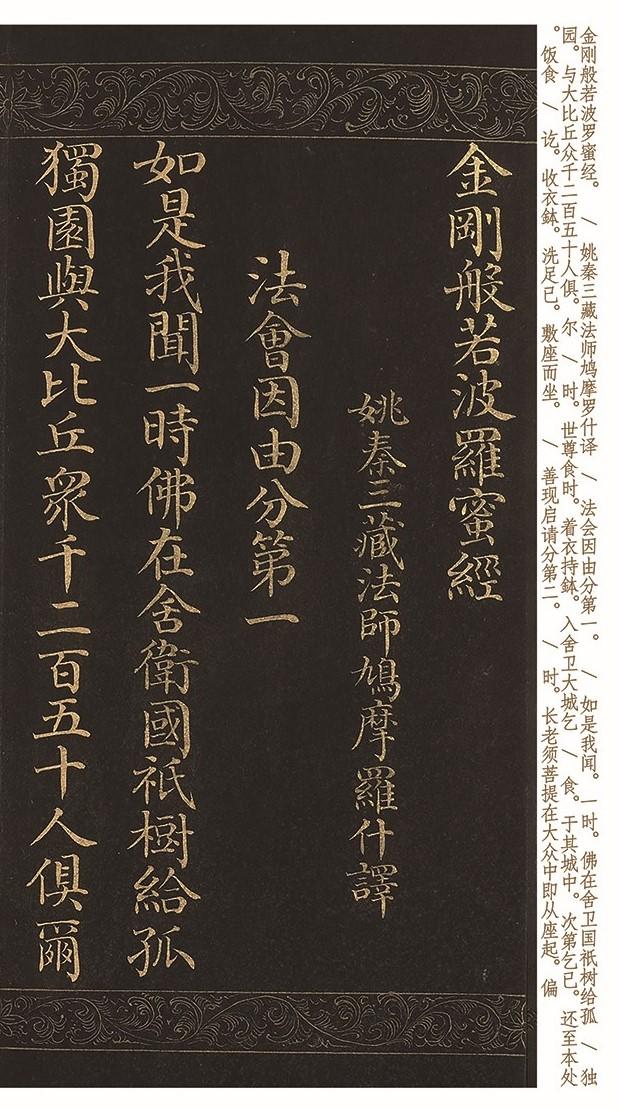 金刚般若波罗蜜经。 / 姚秦三藏法师鸠摩罗什译 / 法会因由分第一。 / 如是我闻。一时。佛在舍卫国祇树给孤 / 独
园。与大比丘众千二百五十人俱。尔 / 时。世尊食时。着衣持鉢。入舍卫大城乞 / 食。于其城中。次第乞已。还至本处
。饭食 / 讫。收衣鉢。洗足已。敷座而坐。 / 善现启请分第二。 / 时。长老须菩提在大众中即从座起。偏
金剛般若波羅蜜經
姚秦三藏法師鳩摩羅什譯
法會因由分第一
如是我聞一時佛在舍衛國祇樹給孤
獨園與大比丘衆千二百五十人俱爾